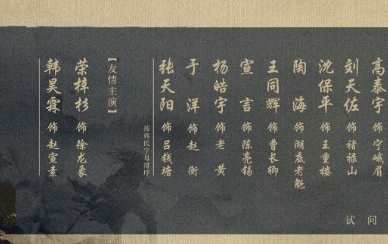 高泰宇 饰 宁峨眉
刘天佐 饰 褚禄山
沈保平 饰 王重楼
陶海 饰 湖底老魁
王同辉 饰 曹长卿
宣言 饰 陈亮锡
杨皓宇 饰 老黄
于洋 饰 赵衡
张天阳 饰 吕钱塘
按姓氏字母排序
【友情主演】
荣梓杉 饰 徐龙象
韩昊霖 饰 赵宣素
试问